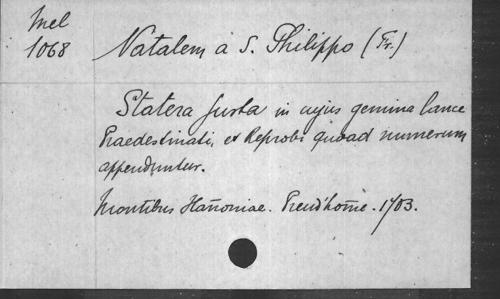 Mel
1068
Natalem à S. Philippo (Fr.)
Statera Justa in cujus gemina lance
Praedestinati, et Reprobi quoad numerum
appenduntur.
Montibus Hañoniae. Preud'hom̄e. 1703.